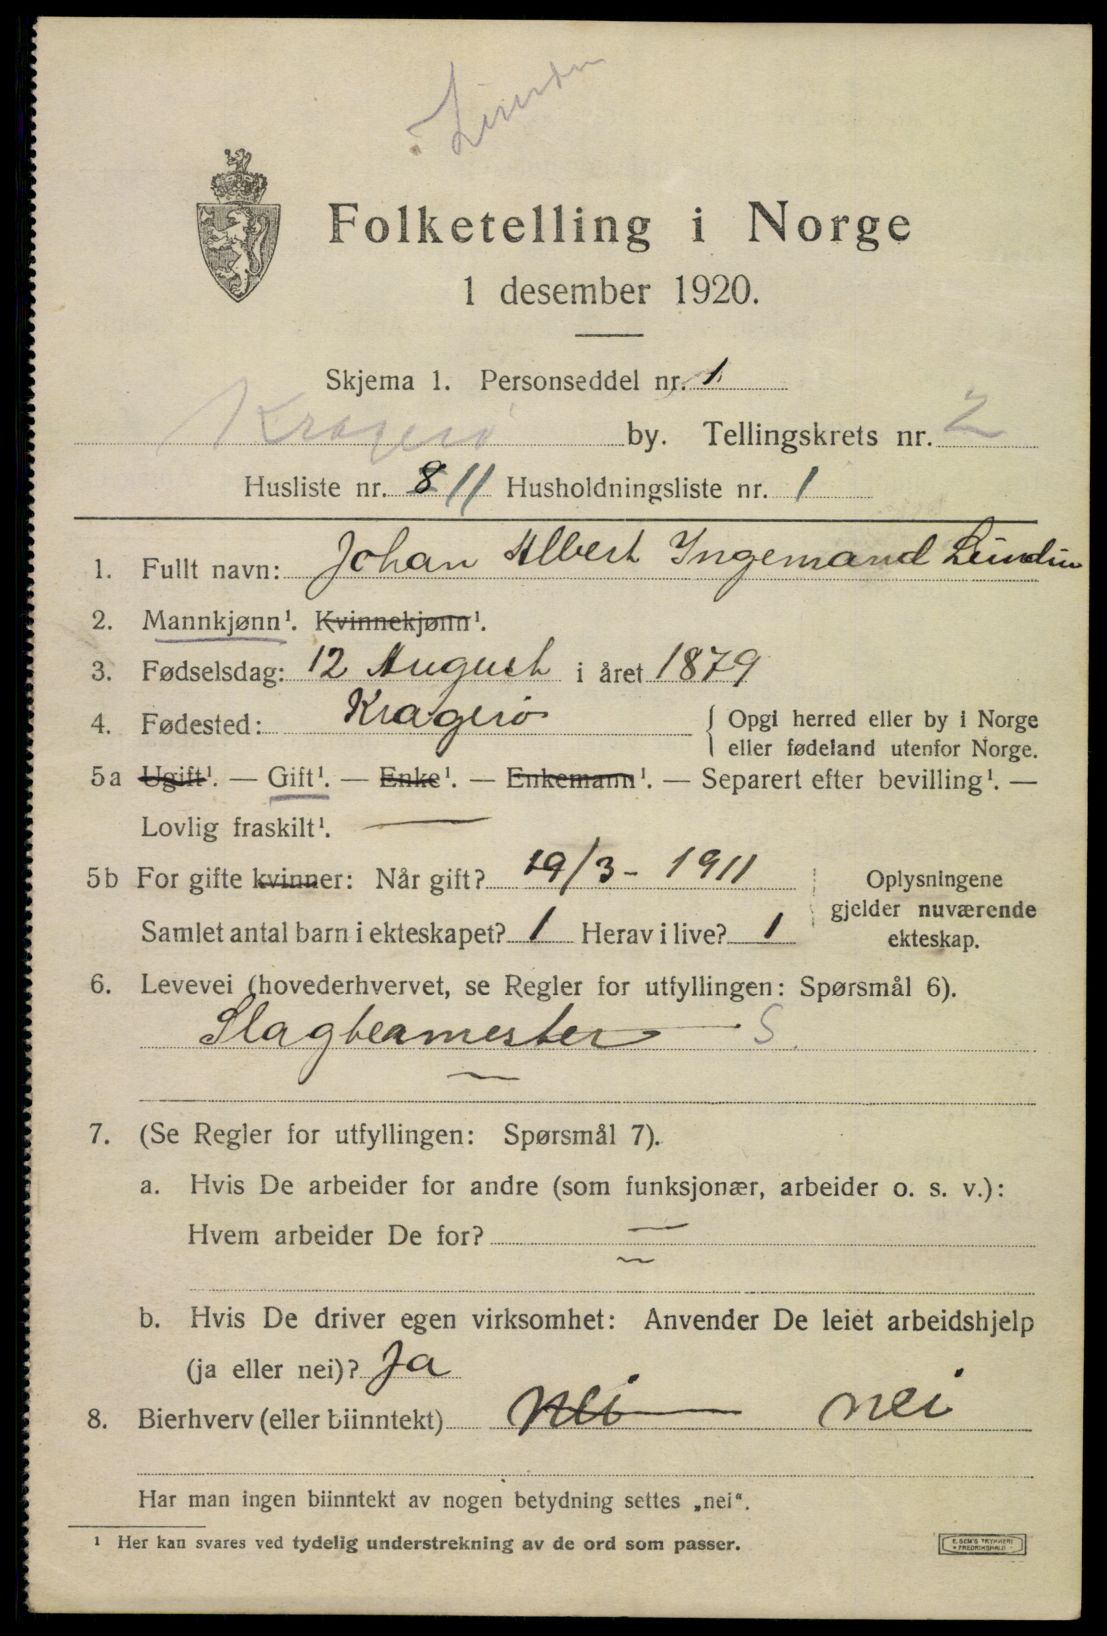 Lundin
Folketelling i Norge
1 desember 1920.
Skjema 1. Personseddel nr. 1
Kragerø by. Tellingskrets nr. 2
Husliste nr. 811 Husholdningsliste nr. 1
1. Fullt navn: Johan Albert Ingemand Lundin
2. Mannkjønn¹. Kvinnekjønn¹.
3. Fødselsdag: 12 August i året 1879
4. Fødested: Kragerø { Opgi herred eller by i Norge
eller fødeland utenfor Norge.
5a Ugift¹. — Gift¹. — Enke¹. — Enkemann¹. — Separert efter bevilling¹. —
Lovlig fraskilt¹.
5b For gifte kvinner: Når gift? 19/3 - 1911 Oplysningene
gjelder nuværende
Samlet antal barn i ekteskapet? 1 Herav i live? 1 ekteskap.
6. Levevei (hovederhvervet, se Regler for utfyllingen: Spørsmål 6).
Slagtermester S.
7. (Se Regler for utfyllingen: Spørsmål 7).
a. Hvis De arbeider for andre (som funksjonær, arbeider o. s. v.):
Hvem arbeider De for? —
b. Hvis De driver egen virksomhet: Anvender De leiet arbeidshjelp
(ja eller nei)? Ja
8. Bierhverv (eller biinntekt) Nei nei
Har man ingen biinntekt av nogen betydning settes „nei“.
¹ Her kan svares ved tydelig understrekning av de ord som passer.
E. SEM'S TRYKKERI
FREDRIKSHALD